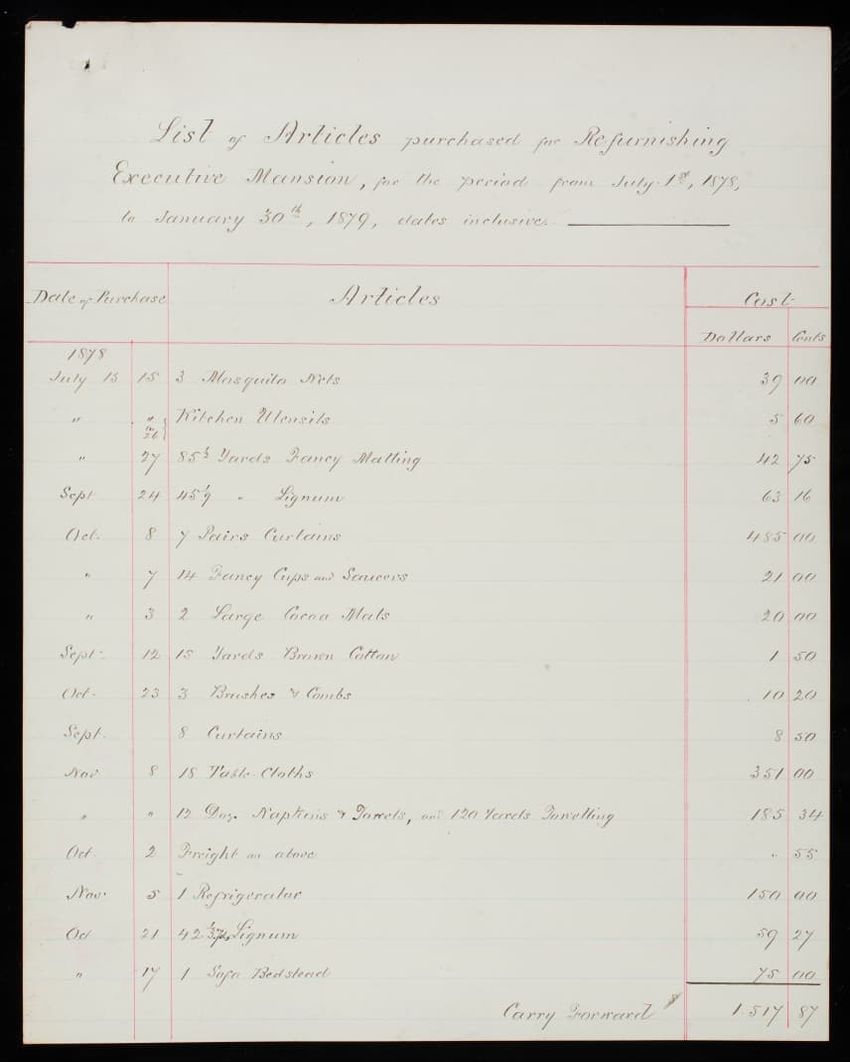 List of Articles purchased for Refurnishing
Executive Mansion, for the period from July 1st, 1878,
to January 30th, 1879, dates inclusive.
Date of Purchase Articles Cost
Dollars Cents
1878
July 15 15 3 Mosquito Nets 39 00
" " to 26 Kitchen Utensils 5 60
" 27 85½ Yards Fancy Matting 42 75
Sept 24 45 1/9 " Lignum 63 16
Oct. 8 7 Pairs Curtains 485 00
" 7 14 Fancy Cups and Saucers 21 00
" 3 2 Large Cocoa Mats 20 00
Sept. 12 15 Yards Brown Cotton 1 50
Oct. 23 3 Brushes & Combs 10 20
Sept. 8 Curtains 8 50
Nov 8 18 Table Cloths 351 00
" " 12 Doz. Napkins & Towels, and 120 Yards Towelling 185 34
Oct. 2 Freight on above " 55
Nov. 5 1 Refrigerator 150 00
Oct 21 42 Lignum 59 27
" 17 1 Sofa Bedstead 75 00
Carry Forward $ 1.517 87